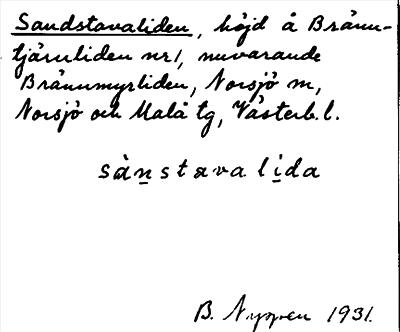 Sandstavaliden, höjd å Bränn-
tjärnliden nr 1, nuvarande
Brännmyrliden, Norsjö sn,
Norsjö och Malå tg, Västerb. l.
sànstavalida
B. Nyman 1931.